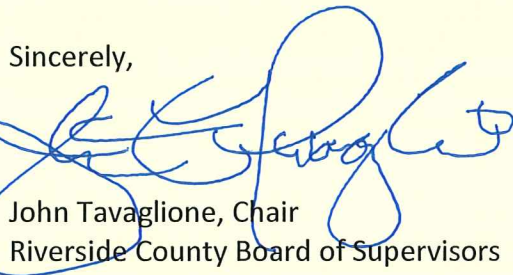 Sincerely,
John Tavaglione, Chair
Riverside County Board of Supervisors